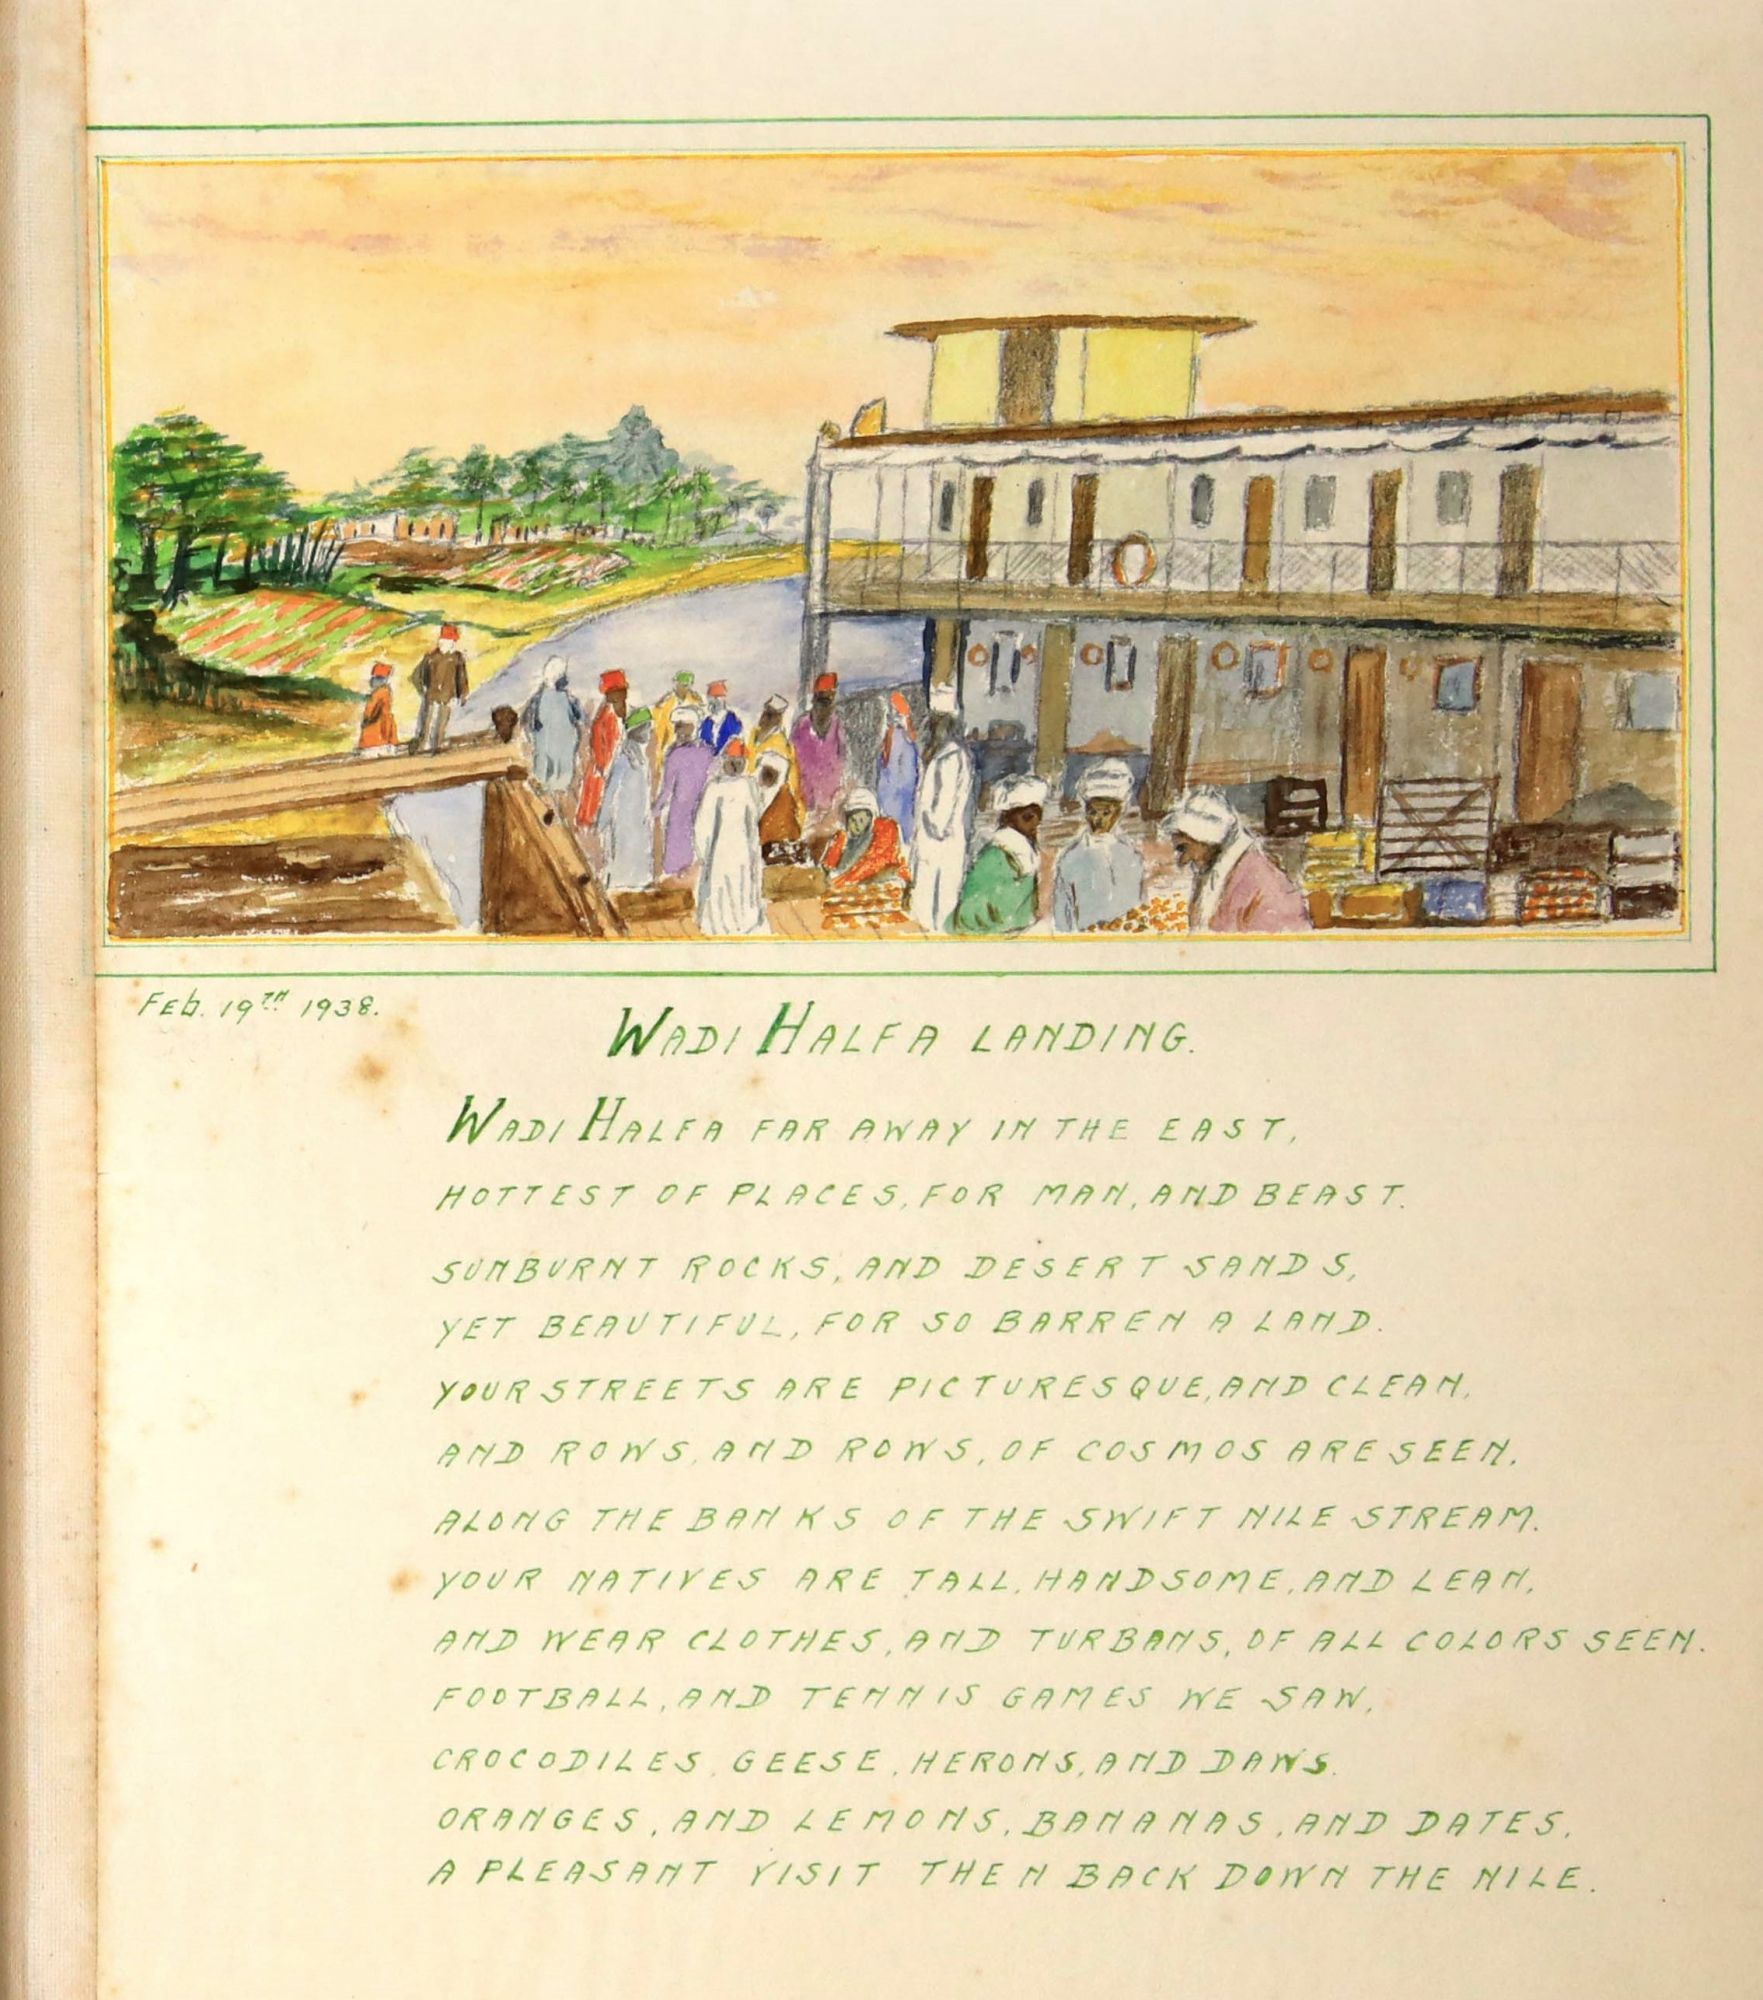 Feb. 19TH 1938.
WADI HALFA LANDING.
WADI HALFA FAR AWAY IN THE EAST,
HOTTEST OF PLACES, FOR MAN, AND BEAST.
SUNBURNT ROCKS, AND DESERT SANDS,
YET BEAUTIFUL, FOR SO BARREN A LAND.
YOUR STREETS ARE PICTURESQUE, AND CLEAN,
AND ROWS, AND ROWS, OF COSMOS ARE SEEN,
ALONG THE BANKS OF THE SWIFT NILE STREAM.
YOUR NATIVES ARE TALL, HANDSOME, AND LEAN,
AND WEAR CLOTHES, AND TURBANS, OF ALL COLORS SEEN.
FOOTBALL, AND TENNIS GAMES WE SAW,
CROCODILES, GEESE, HERONS, AND DAWS.
ORANGES, AND LEMONS, BANANAS, AND DATES,
A PLEASANT VISIT THEN BACK DOWN THE NILE.